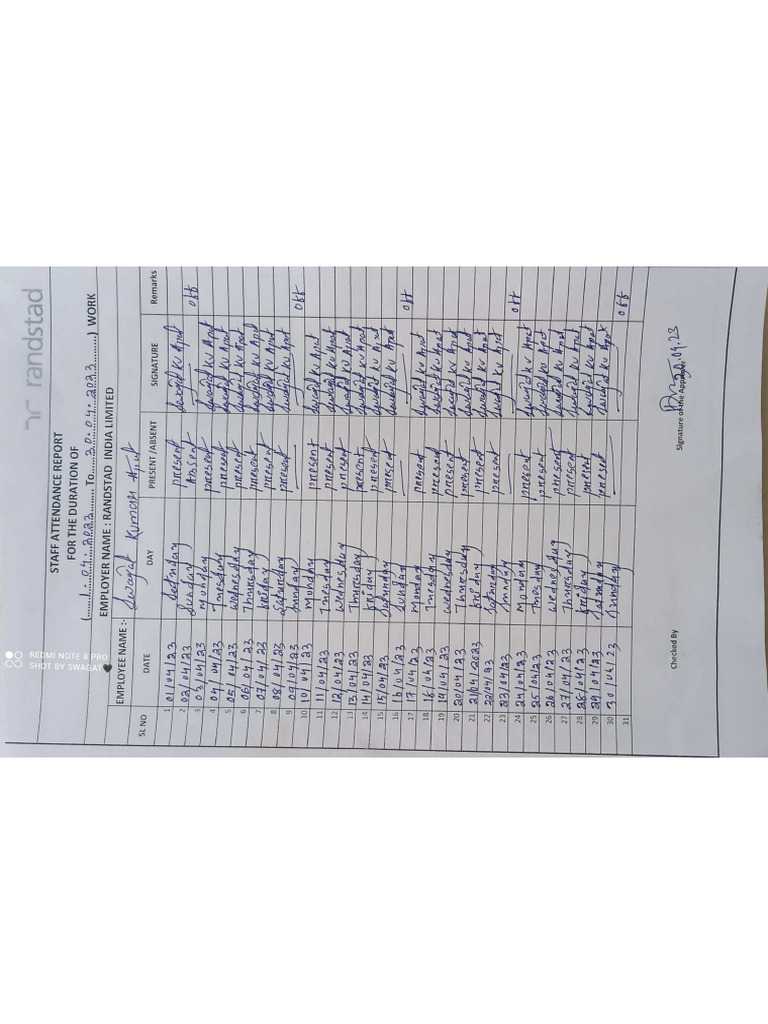 randstad
STAFF ATTENDANCE REPORT
FOR THE DURATION OF
(1.04.2023 To 30.04.2023) WORK
EMPLOYER NAME : RANDSTAD INDIA LIMITED
EMPLOYEE NAME :- Swagat Kumar
SL NO DATE DAY PRESENT /ABSENT SIGNATURE Remarks
1 01/04/23 Saturday present Swagat Ku Apat
2 02/04/23 Sunday Absent off
3 03/04/23 Monday present Swagat Ku Apat
4 04/04/23 Tuesday present Swagat Ku Apat
5 05/04/23 wednesday present Swagat Ku Apat
6 06/04/23 Thursday present Swagat Ku Apat
7 07/04/23 Friday present Swagat Ku Apat
8 08/04/23 Saturday present Swagat Ku Apat
9 09/04/23 Sunday off
10 10/04/23 Monday present Swagat Ku Apat
11 11/04/23 Tuesday present Swagat Ku Apat
12 12/04/23 wednesday present Swagat Ku Apat
13 13/04/23 Thursday present Swagat Ku Apat
14 14/04/23 Friday present Swagat Ku Apat
15 15/04/23 Saturday present Swagat Ku Apat
16 16/04/23 Sunday off
17 17/04/23 Monday present Swagat Ku Apat
18 18/04/23 Tuesday present Swagat Ku Apat
19 19/04/23 wednesday present Swagat Ku Apat
20 20/04/23 Thursday present Swagat Ku Apat
21 21/04/2023 Friday present Swagat Ku Apat
22 22/04/23 Saturday present Swagat Ku Apat
23 23/04/23 Sunday off
24 24/04/23 Monday present Swagat Ku Apat
25 25/04/23 Tuesday present Swagat Ku Apat
26 26/04/23 wednesday present Swagat Ku Apat
27 27/04/23 Thursday present Swagat Ku Apat
28 28/04/23 Friday present Swagat Ku Apat
29 29/04/23 Saturday present Swagat Ku Apat
30 30/04/23 Sunday off
31
Checked By Signature of the
REDMI NOTE 8 PRO
SHOT BY SWAGAT